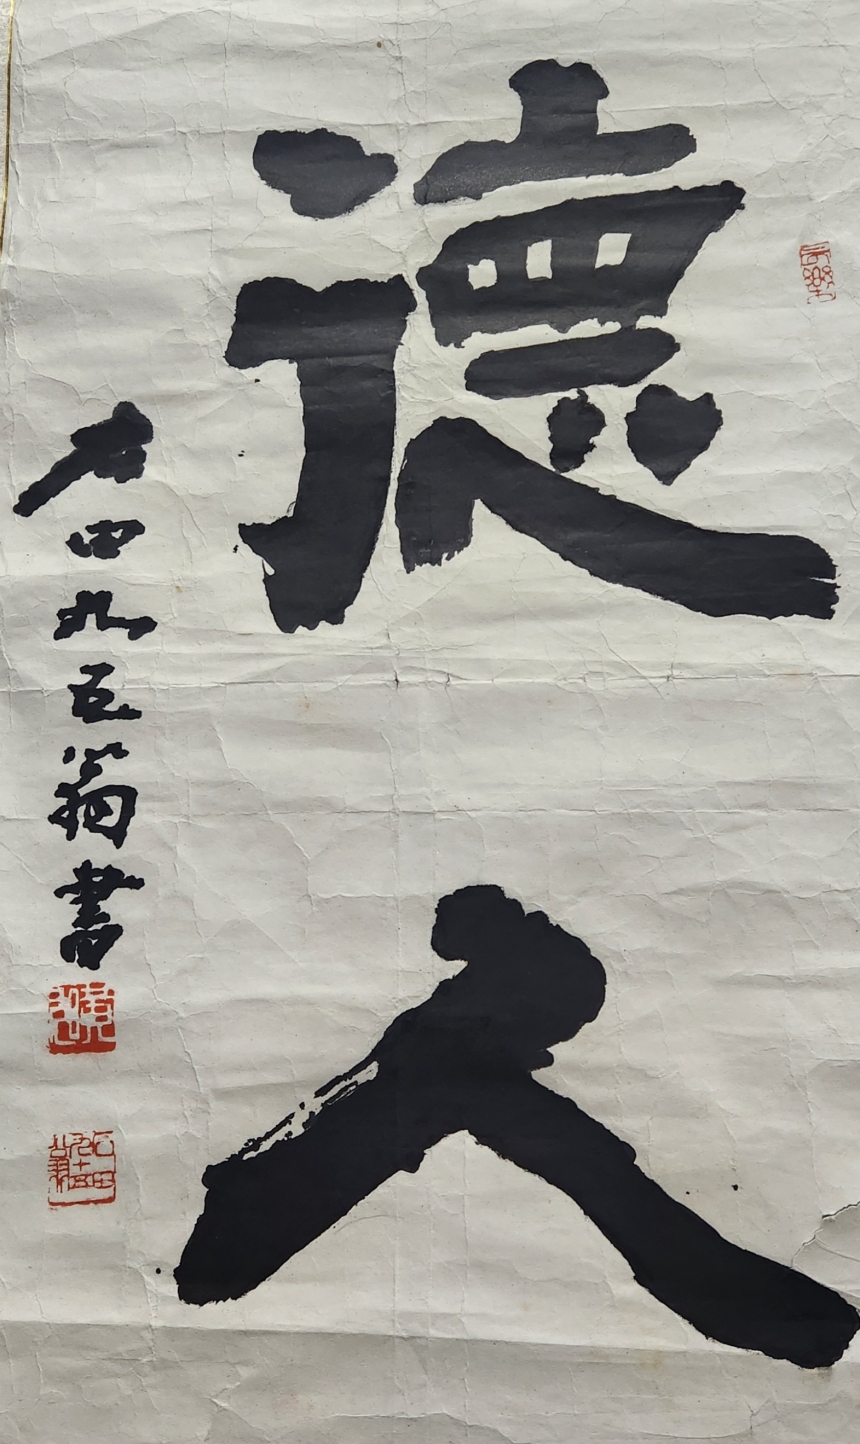 長樂
德人
石田九五翁書